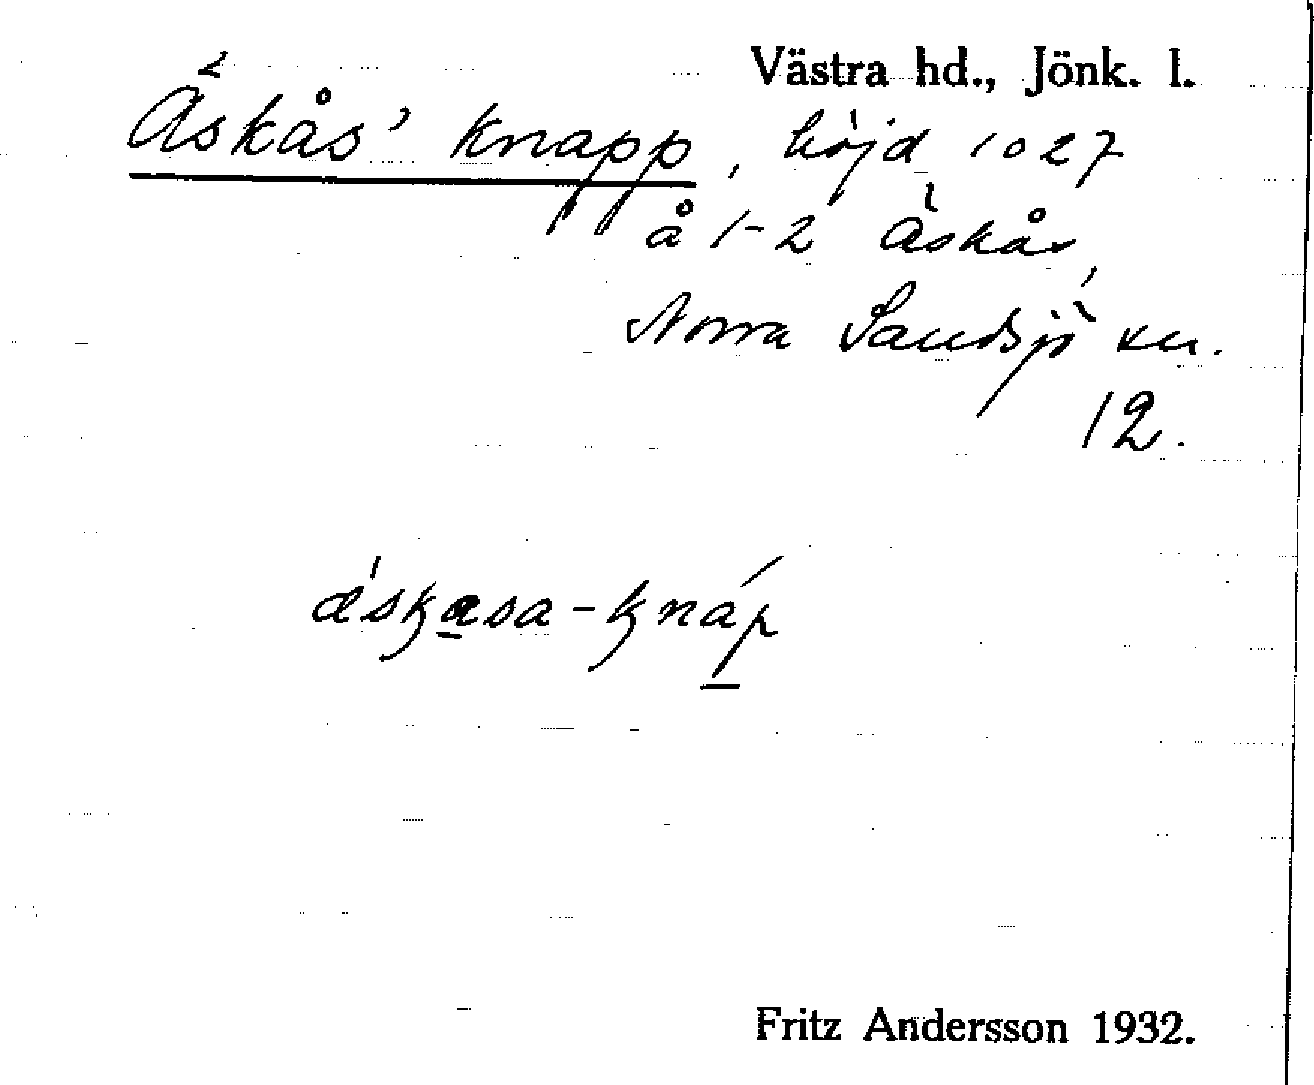 Västra hd., Jönk. l.
Äskås' knapp, höjd 1027
å 1-2 Äskås,
Norra Sandsjö sn.
12.
ä́skasa-knáp
Fritz Andersson 1932.